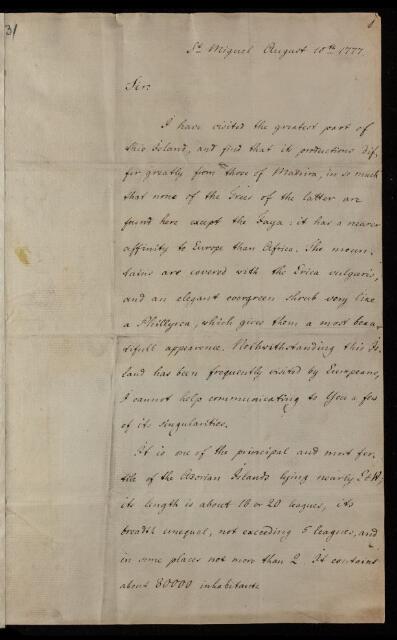 31
1
St. Miguel August 10th 1777
Sir:
I have visited the greatest part of
this Island, and find that its productions dif,
fer greatly from those of Madeira, in so much
that none of the Trees of the latter are
found here except the Faya: it has a nearer
affinity to Europe than Africa. The moun,
tains are covered with the Erica vulgaris,
and an elegant evergreen shrub very like
a Phillyrea, which gives them a most beau
tifull appearence. Notwithstanding this Is,
land has been frequently visited by Europeans,
I cannot help communicating to You a few
of its singularities.
It is one of the principal and most fer,
tile of the Azorian Islands lying nearly E & W,
its length is about 18 or 20 leagues, its
breadth unequal, not exceeding 5 leagues, and
in some places not more than 2. It contains
about 80000 inhabitants